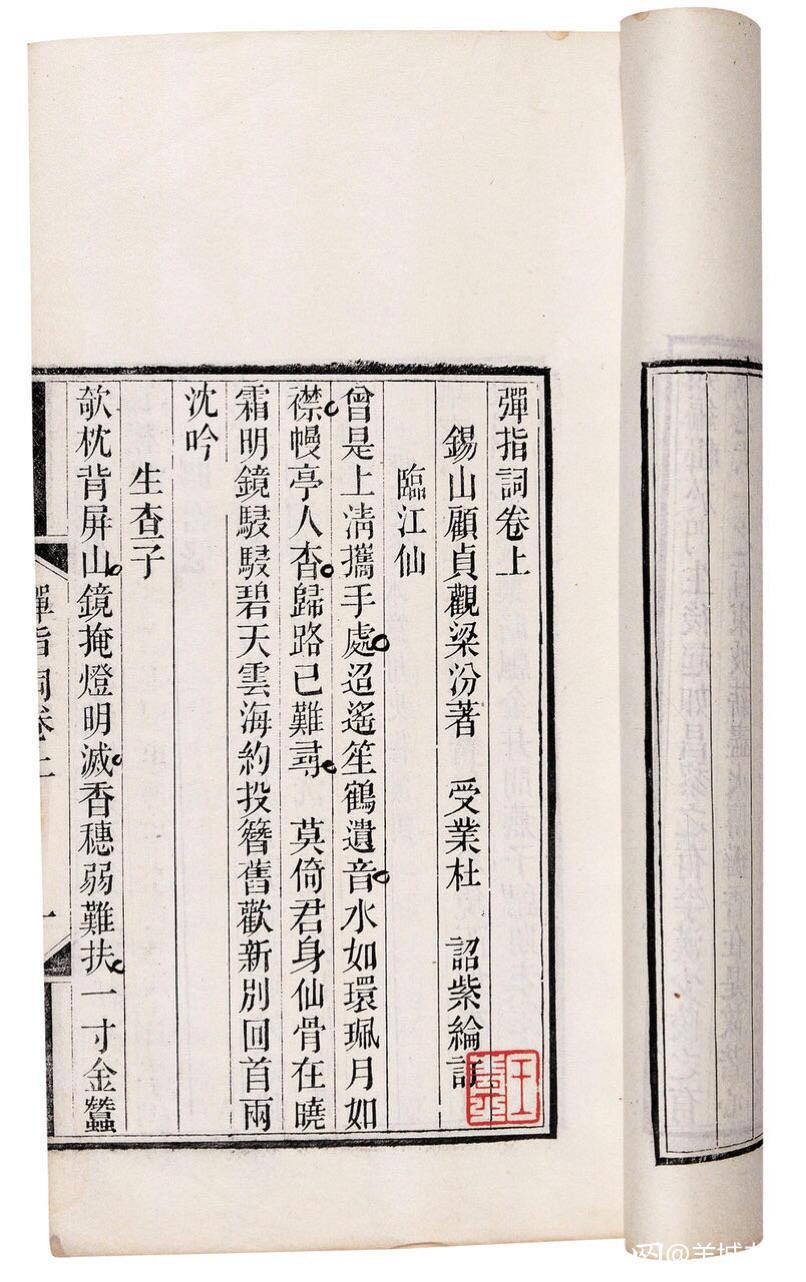 彈指詞卷上
錫山顧貞觀梁汾著　受業杜　詔紫綸訂
臨江仙
曾是上淸攜手處迢遙笙鶴遺音水如環珮月如
襟幔亭人杳歸路已難尋　莫倚君身仙骨在曉
霜明鏡駸駸碧天雲海約投簪舊歡新別回首兩
沈吟
生查子
欹枕背屏山鏡掩燈明滅香穗弱難扶一寸金蠶
彈指詞卷上
一
@羊城